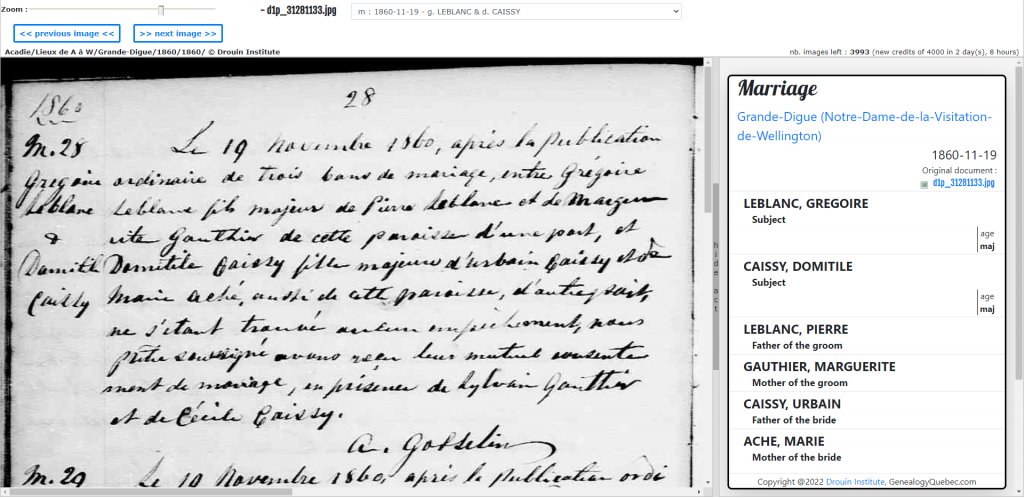 Zoom :
- d1p_31281133.jpg
m : 1860-11-19 - g. LEBLANC & d. CAISSY
<< previous image <<
>> next image >>
Acadie/Lieux de A à W/Grande-Digue/1860/1860/ © Drouin Institute
nb. images left : 3993 (new credits of 4000 in 2 day(s), 8 hours)
1860
28
M. 28
Gregoire
Leblanc
&
Domitile
Caissy
Le 19 Novembre 1860, après la publication
ordinaire de trois bans de mariage, entre Grégoire
Leblanc fils majeur de Pierre Leblanc et de Margue
rite Gauthier de cette paroisse d'une part, et
Domitile Caissy fille majeure d'Urbain Caissy et de
Marie Aché, aussi de cette paroisse, d'autre part,
ne s'étant trouvé aucun empêchement, nous
Prêtre soussigné avons reçu leur mutuel consente
ment de mariage, en présence de Sylvain Gauthier
et de Cécile Caissy.
A. Gosselin
M. 29
Le 19 Novembre 1860, après la publication ordi
hide act
Marriage
Grande-Digue (Notre-Dame-de-la-Visitation-
de-Wellington)
1860-11-19
Original document :
d1p_31281133.jpg
LEBLANC, GREGOIRE
Subject
age
maj
CAISSY, DOMITILE
Subject
age
maj
LEBLANC, PIERRE
Father of the groom
GAUTHIER, MARGUERITE
Mother of the groom
CAISSY, URBAIN
Father of the bride
ACHE, MARIE
Mother of the bride
Copyright @2022 Drouin Institute, GenealogyQuebec.com